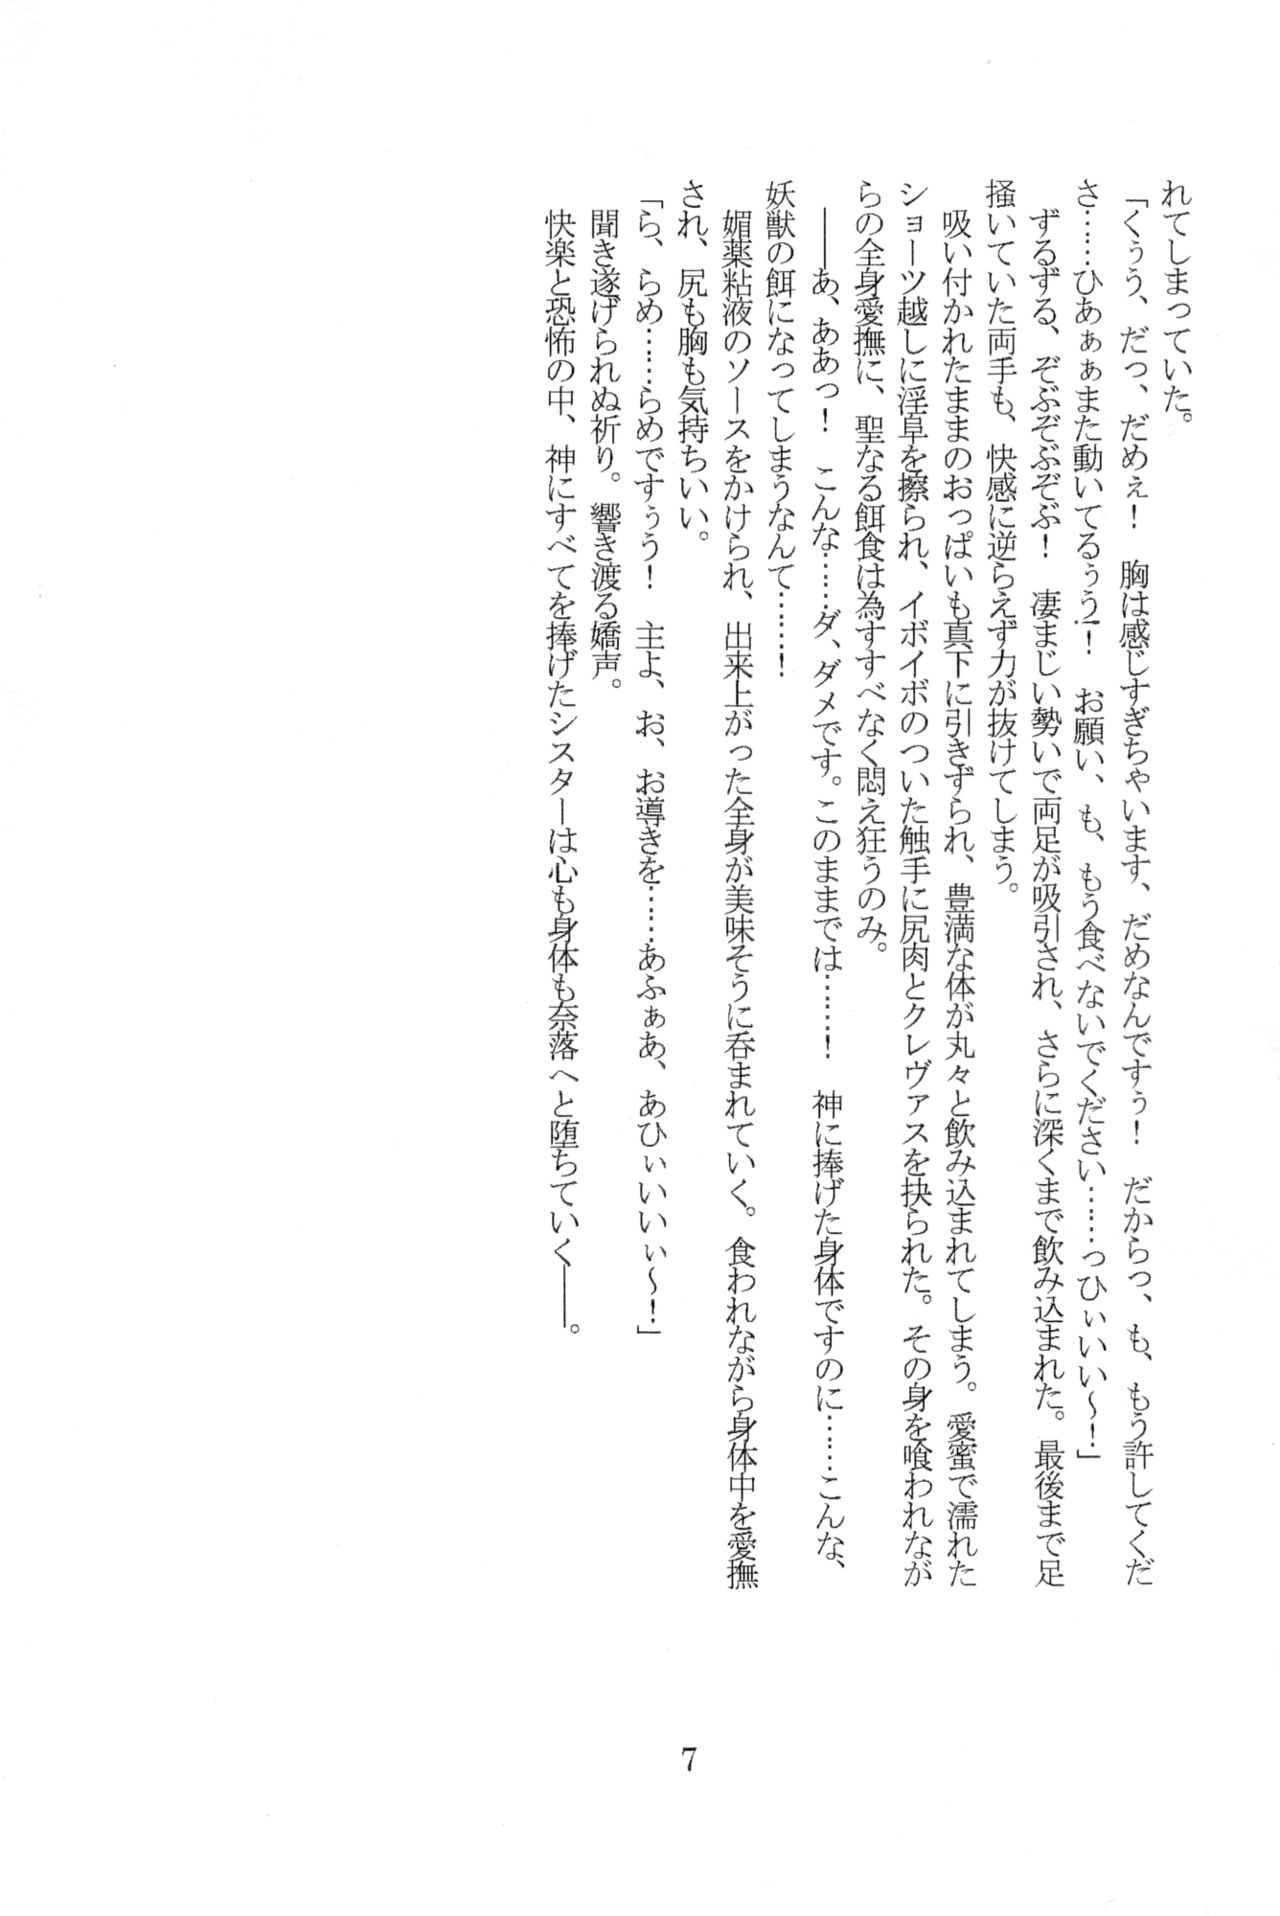 れてしまっていた。
「くぅう、だっ、だめぇ！　胸は感じすぎちゃいます、だめなんですぅ！　だからっ、も、もう許してくだ
さ……ひあぁぁまた動いてるぅう！　お願い、も、もう食べないでください……っひぃいい～！」
　ずるずる、ぞぶぞぶぞぶ！　凄まじい勢いで両足が吸引され、さらに深くまで飲み込まれた。最後まで足
掻いていた両手も、快感に逆らえず力が抜けてしまう。
　吸い付かれたままのおっぱいも真下に引きずられ、豊満な体が丸々と飲み込まれてしまう。愛蜜で濡れた
ショーツ越しに淫阜を擦られ、イボイボのついた触手に尻肉とクレヴァスを抉られた。その身を喰われなが
らの全身愛撫に、聖なる餌食は為すすべなく悶え狂うのみ。
　――あ、ああっ！　こんな……ダ、ダメです。このままでは……！　神に捧げた身体ですのに……こんな、
妖獣の餌になってしまうなんて……！
　媚薬粘液のソースをかけられ、出来上がった全身が美味そうに呑まれていく。食われながら身体中を愛撫
され、尻も胸も気持ちいい。
「ら、らめ……らめですぅう！　主よ、お、お導きを……あふぁあ、あひぃいいぃ～！」
　聞き遂げられぬ祈り。響き渡る嬌声。
　快楽と恐怖の中、神にすべてを捧げたシスターは心も身体も奈落へと堕ちていく――。
7